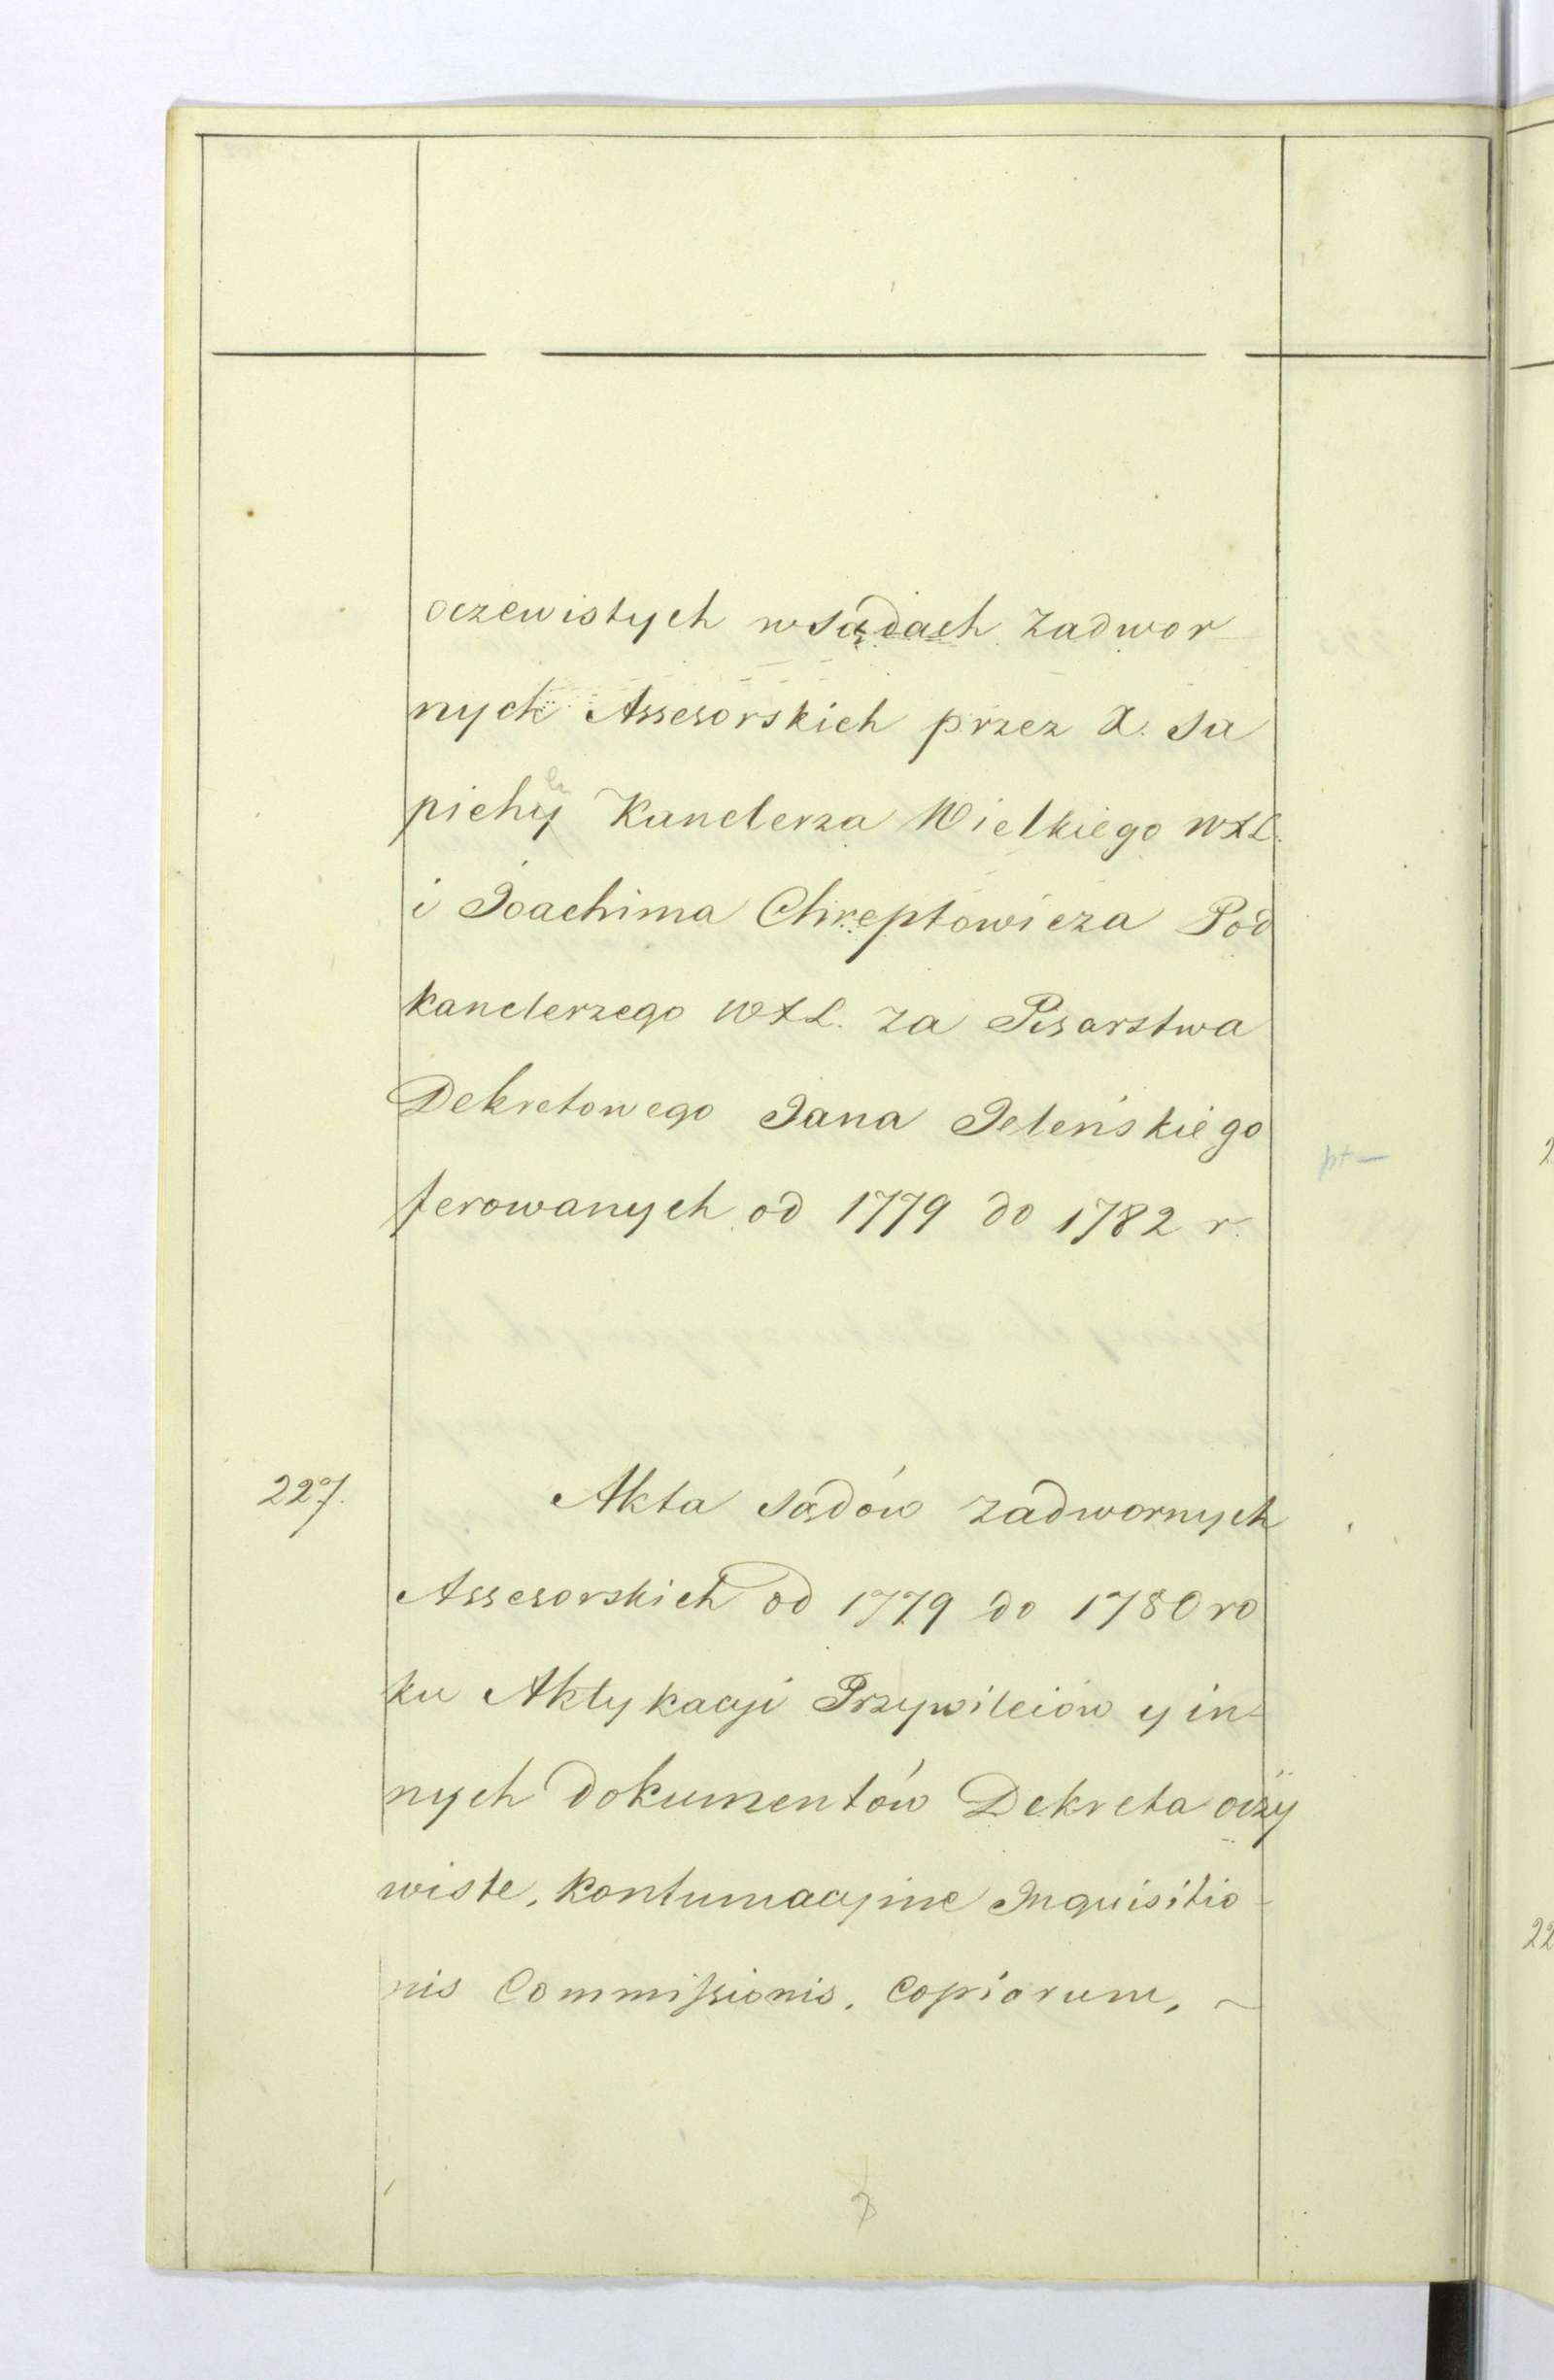 oczewistych w sądach zadwor
nych Assesorskich przez X. Sa
piehy Kanclerza Wielkiego WXL.
i Joachima Chreptowicza Pod
kanclerzego WXL. za Pisarstwa
Dekretowego Jana Jeleńskiego
ferowanych od 1779 do 1782 r.
pt —
227. Akta sądów zadwornych
Assesorskich od 1779 do 1780 ro
ku Aktykacyi Przywileiów y in-
nych dokumentów Dekreta oczy
wiste, kontumacyine Inquisitio-
nis Commissionis, Copiarum, ~